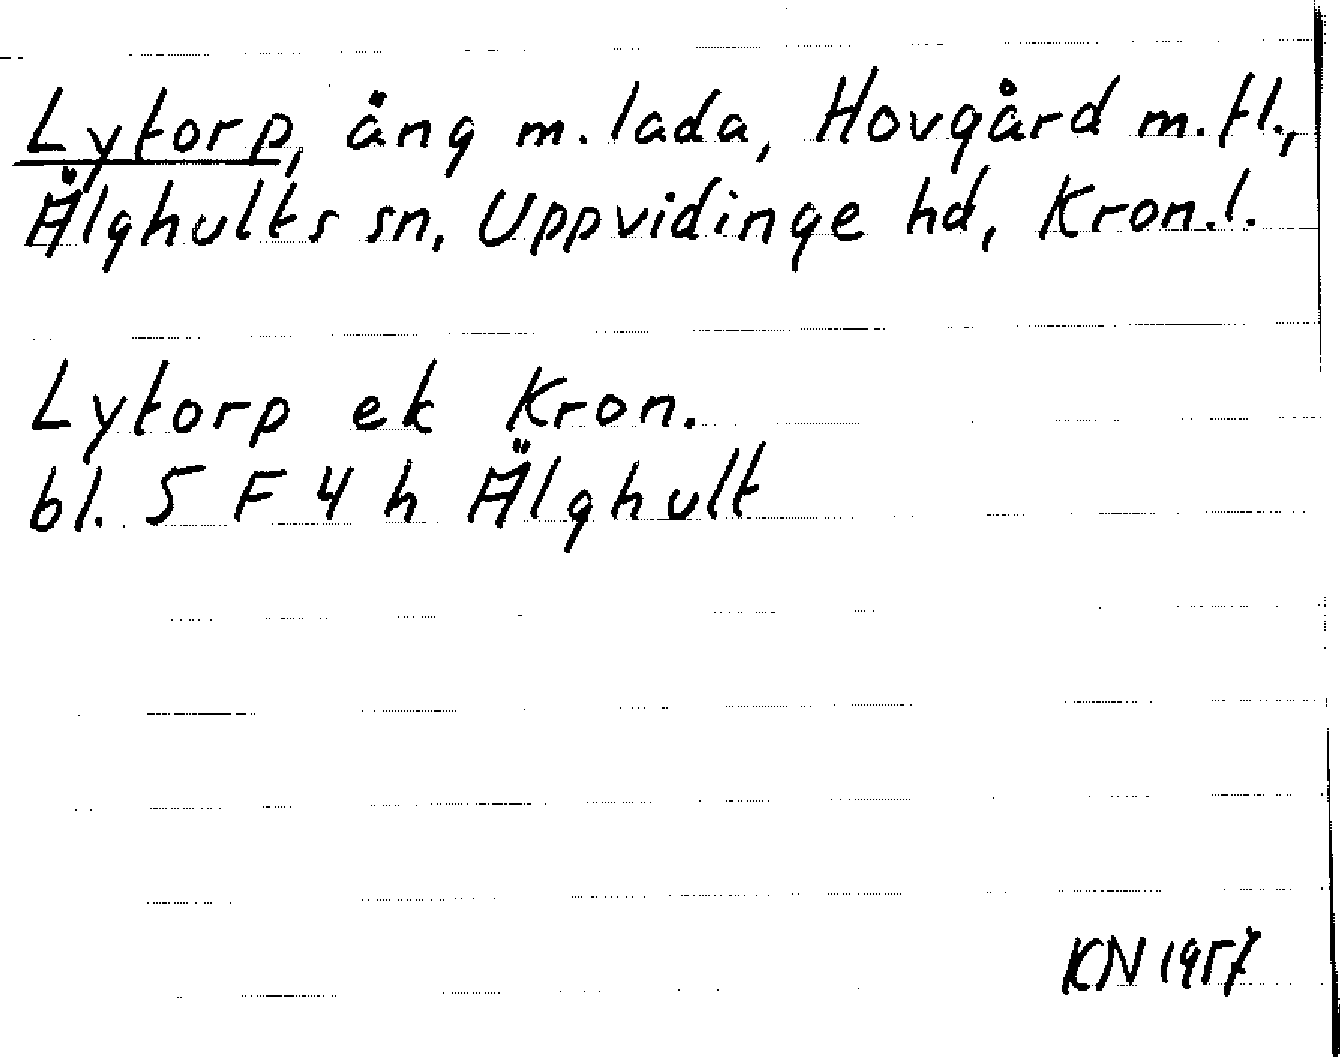 Lytorp, äng m. lada, Hovgård m. fl.,
Älghults sn, Uppvidinge hd, Kron. l.
Lytorp ek Kron.
bl. 5 F 4 h Älghult
KN 1957